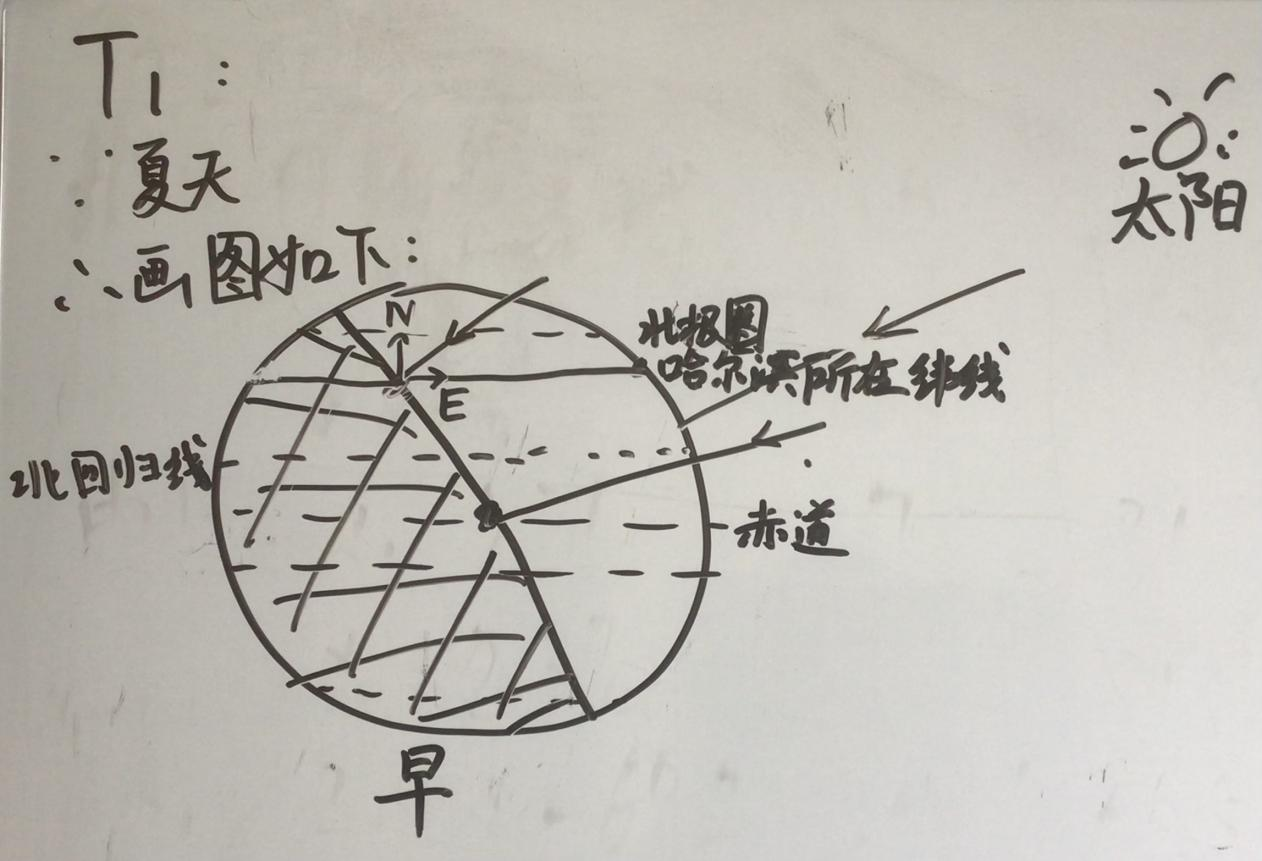 T1:
∵夏天
∴画图如下:
太阳
N
E
北极圈
哈尔滨所在纬线
北回归线
赤道
早